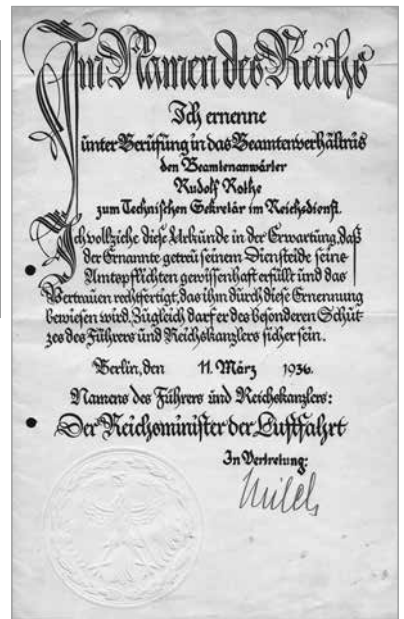 Im Namen des Reichs
Ich ernenne
unter Berufung in das Beamtenverhältnis
den Beamtenanwärter
Rudolf Rothe
zum Technischen Sekretär im Reichsdienst.
Ich vollziehe diese Urkunde in der Erwartung, daß
der Ernannte getreu seinem Diensteide seine
Amtspflichten gewissenhaft erfüllt und das
Vertrauen rechtfertigt, das ihm durch diese Ernennung
bewiesen wird. Zugleich darf er des besonderen Schut-
zes des Führers und Reichskanzlers sicher sein.
Berlin, den 11. März 1936.
Namens des Führers und Reichskanzlers:
Der Reichsminister der Luftfahrt
In Vertretung:
Milch